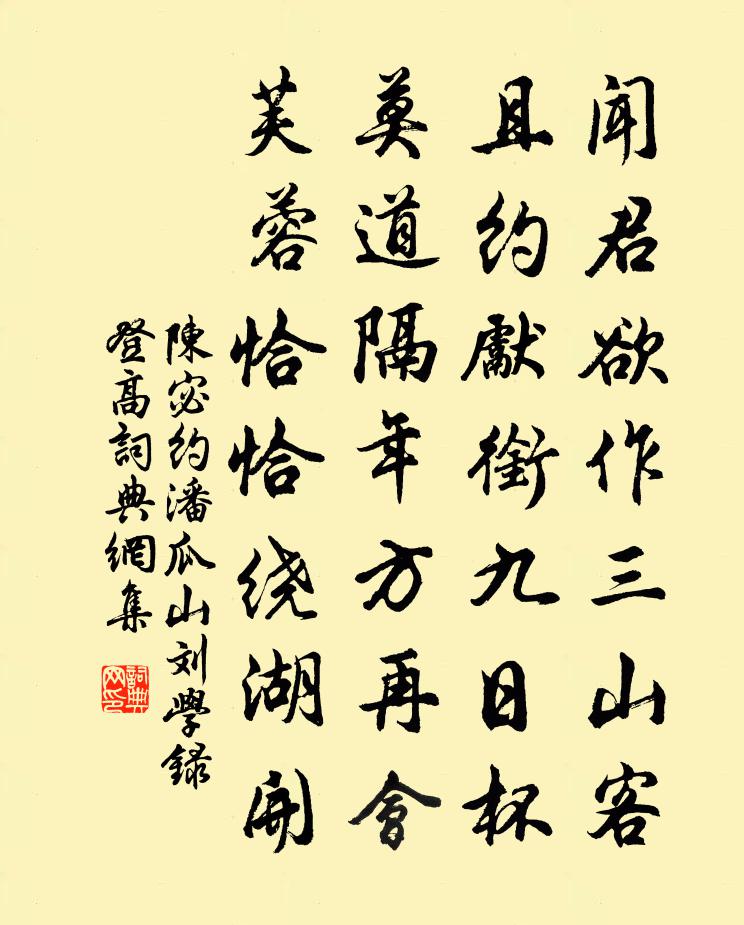 聞君欲作三山客
且約獻銜九日杯
莫道隔年方再會
芙蓉恰恰绕湖開
陳宓約潘瓜山刘學録
登高詞典網集
詞典网印